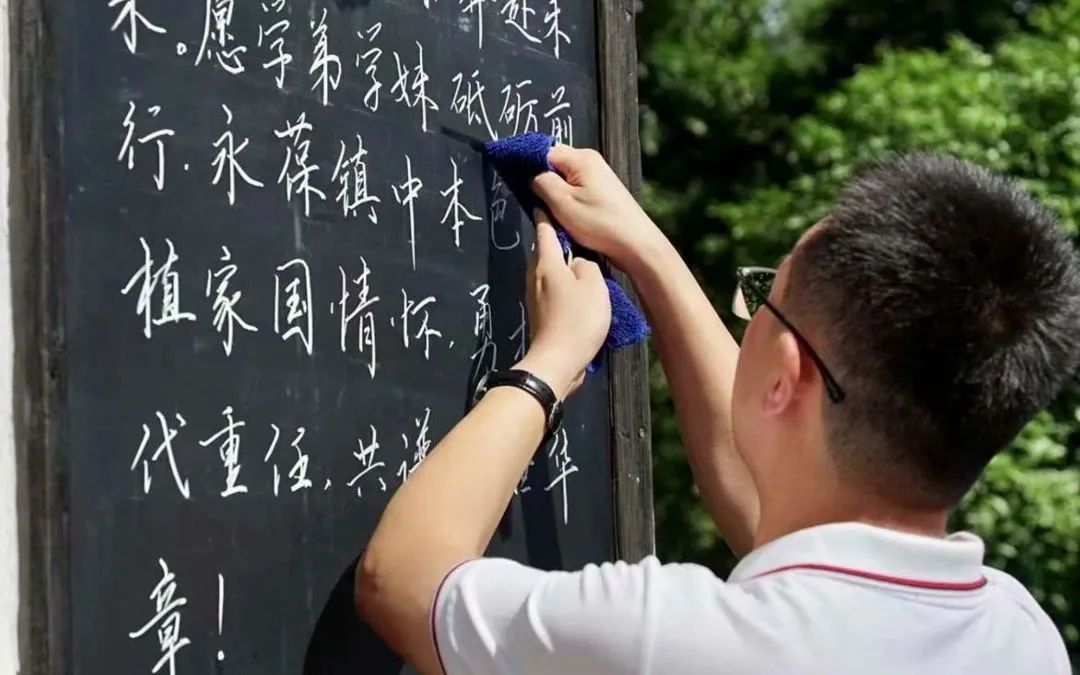 奔赴未
来。愿学弟学妹砥砺前
行，永葆镇中本色
植家国情怀，勇
代重任，共谱 华
章！